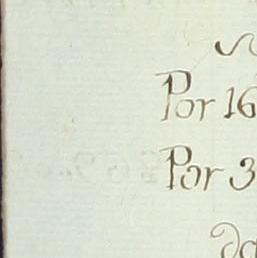 Por 16
Por 3
da